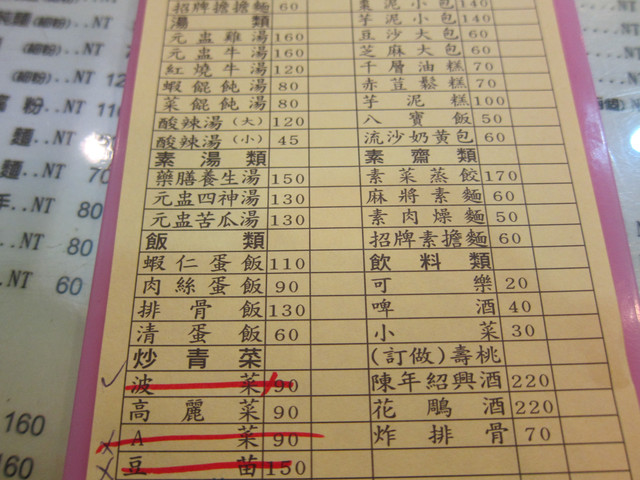 招牌擔擔麵 60
湯類
元盅雞湯 160
元盅牛湯 160
紅燒牛湯 120
蝦餛飩湯 80
菜餛飩湯 80
酸辣湯(大) 120
酸辣湯(小) 45
素湯類
藥膳養生湯 150
元盅四神湯 130
元盅苦瓜湯 130
飯類
蝦仁蛋飯 110
肉絲蛋飯 90
排骨飯 130
清蛋飯 60
炒青菜
波菜 90
高麗菜 90
A菜 90
豆苗 150
棗泥小包 140
芋泥小包 140
豆沙大包 60
芝麻大包 60
千層油糕 70
赤荳鬆糕 70
芋泥糕 100
八寶飯 50
流沙奶黃包 60
素齋類
素菜蒸餃 170
麻將素麵 60
素肉燥麵 50
招牌素擔麵 60
飲料類
可樂 20
啤酒 40
小菜 30
(訂做)壽桃
陳年紹興酒 220
花雕酒 220
炸排骨 70
..NT
..NT 110
麵..NT
麵..NT 70
..NT 80
..NT 80
..NT 60
160
160